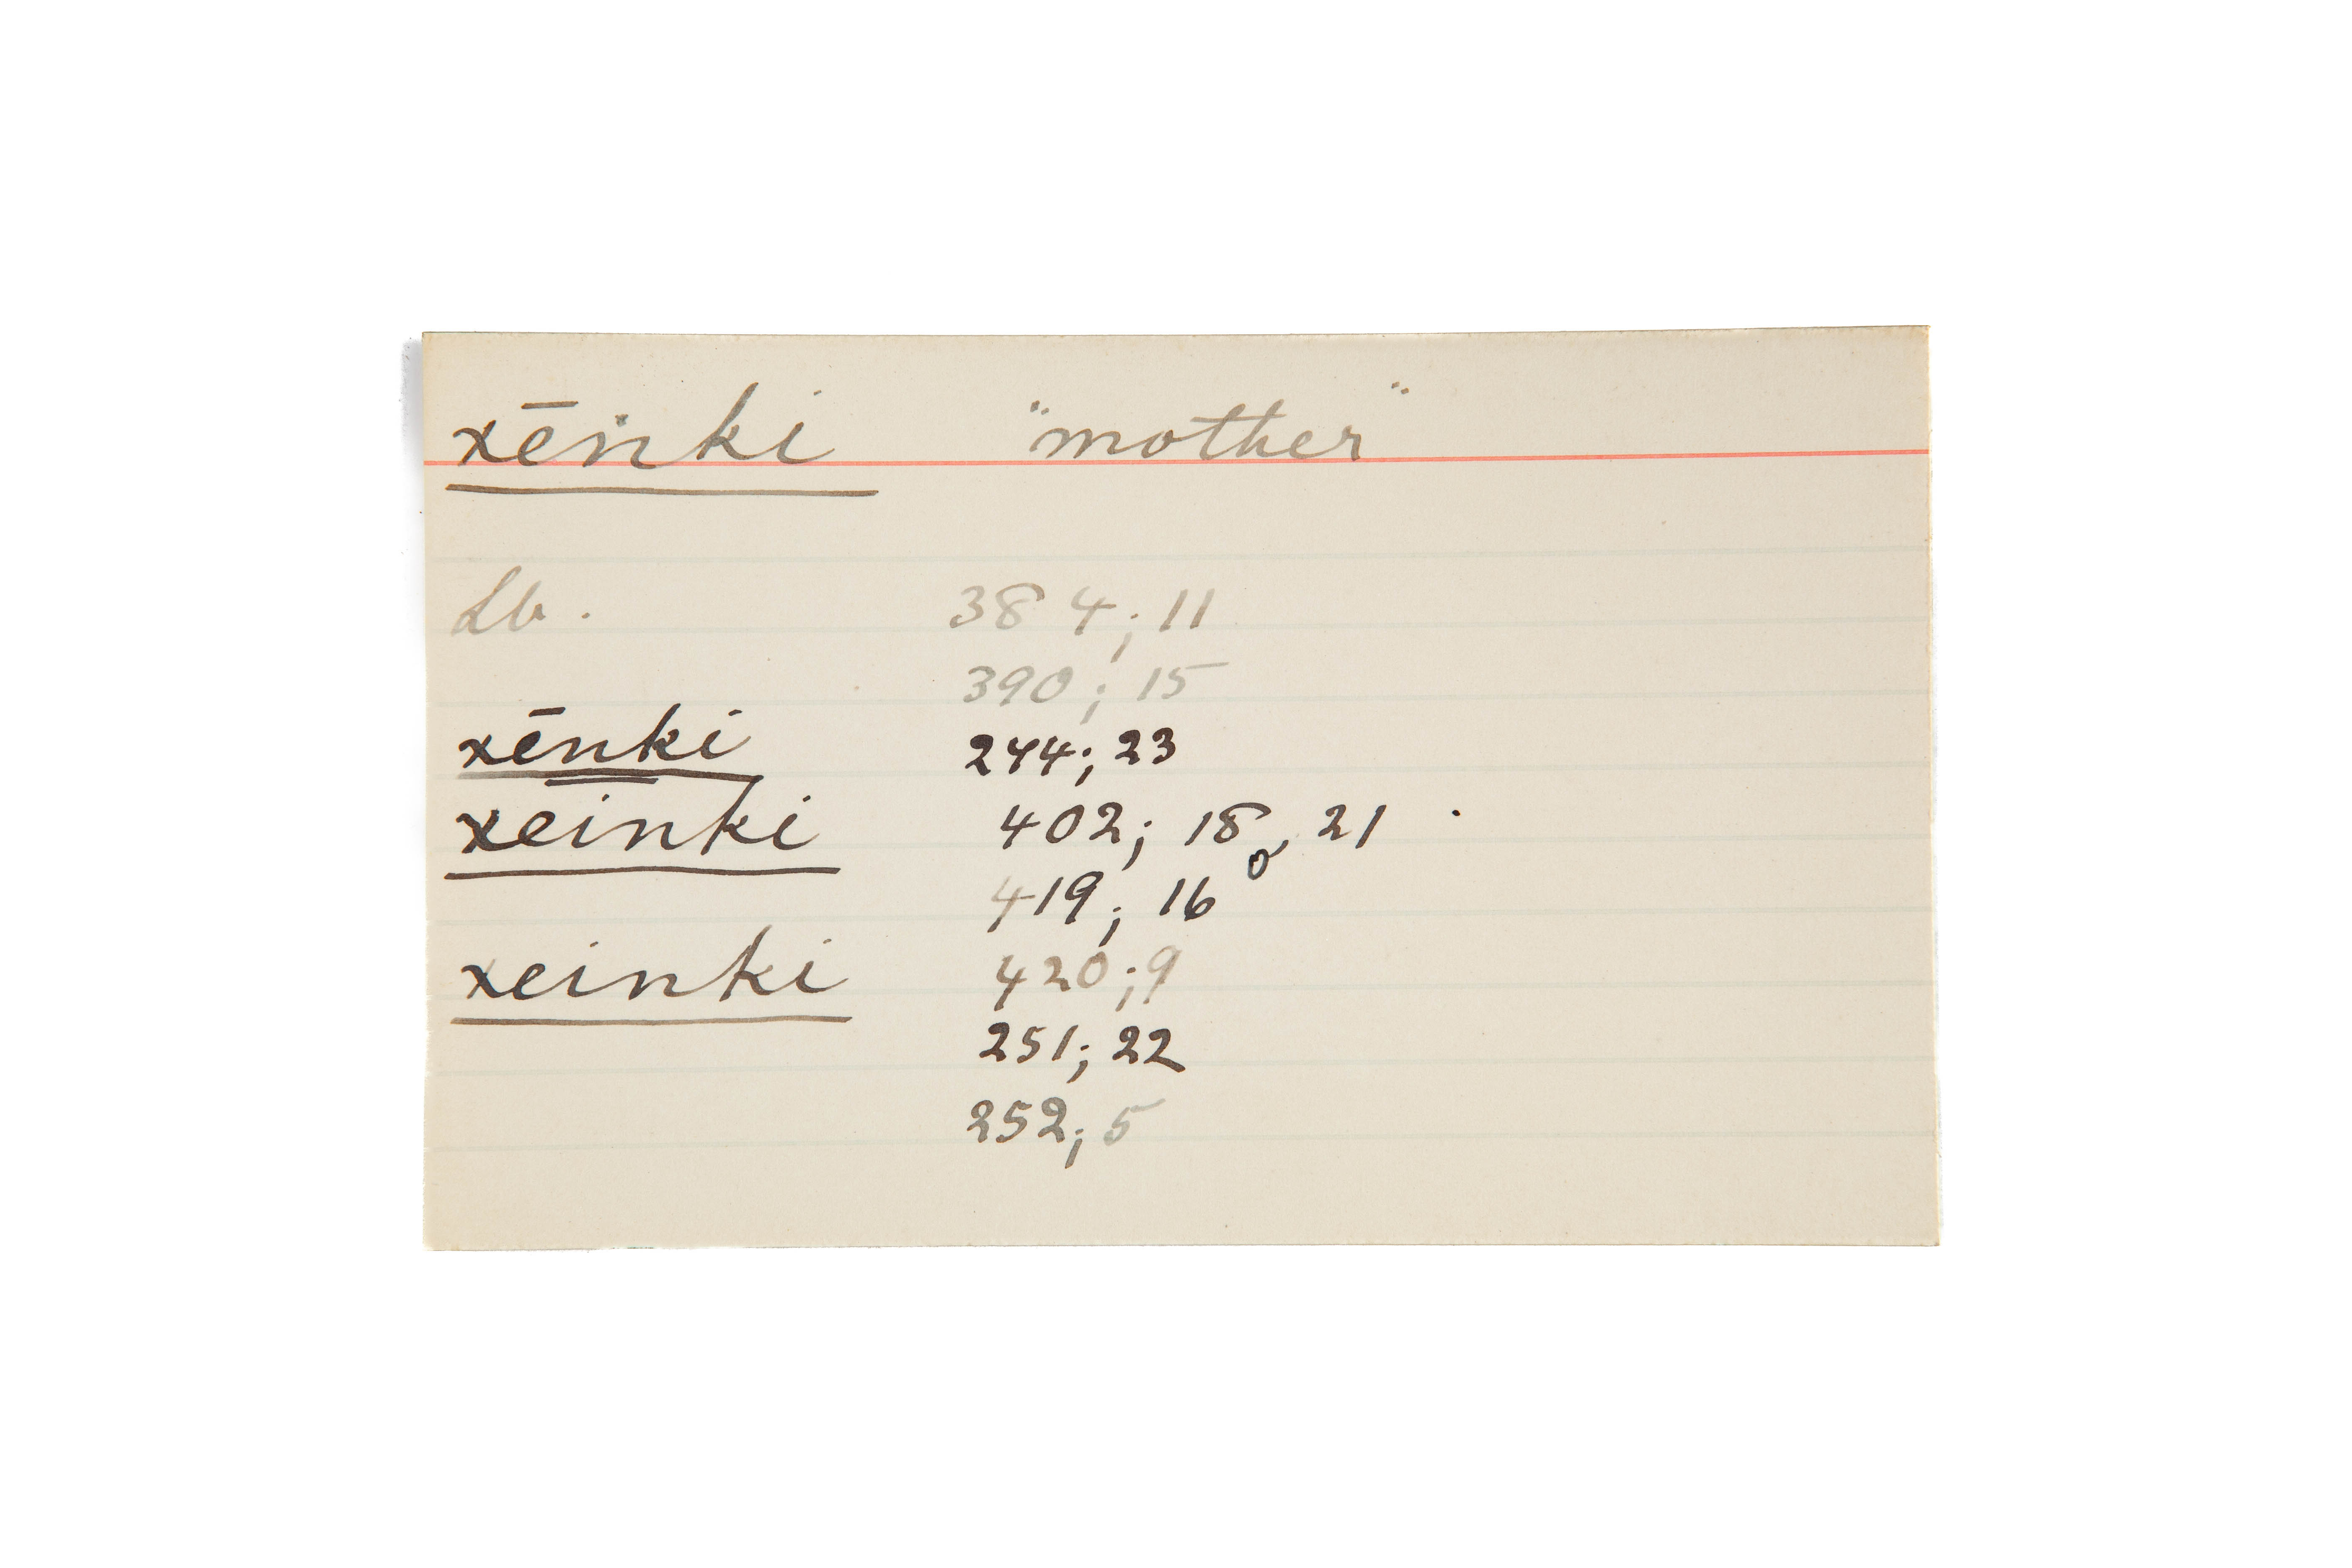 xēṅki "mother"
Lb. 384; 11
390; 15
xēnki 244; 23
xēinki 402; 18, 21
419; 16
xeinki 420; 9
251; 22
252; 5